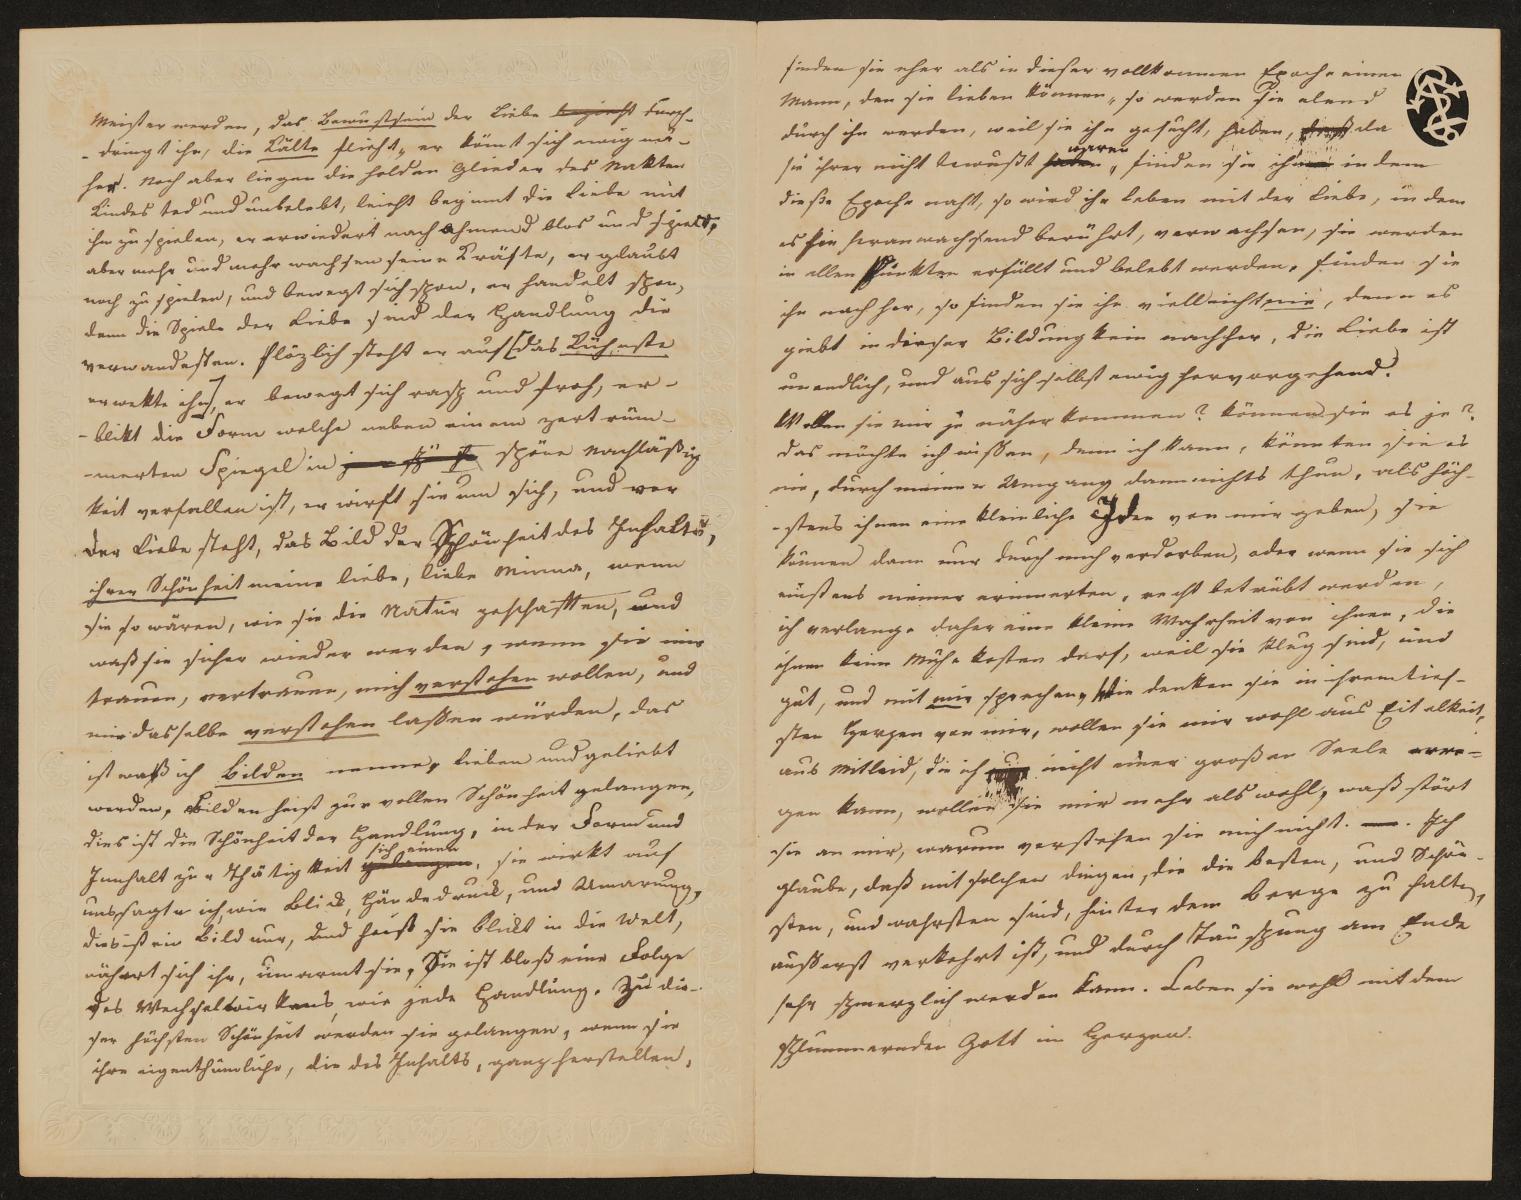 Meister werden, das Bewustsein der Liebe durch-
-dringt ihn, die Kälte flieht, er könt sich ewig nä-
her. Noch aber liegen die holden Glieder des Nakten
Kindes tod und unbelebt, leicht beginnt die Liebe mit
ihm zu spielen, er erwiedert nachahmend blos und spielt,
aber mehr und mehr wachsen seine Kräfte, er glaubt
noch zu spielen, und bewegt sich schon, er handelt schon,
denn die Spiele der Liebe sind der Handlung die
verwandesten. Plözlich steht er auf [das Kühnste
erwekte ihn], er bewegt sich rasch und froh, er-
-blikt die Form welche neben einem zertrüm-
-merten Spiegel in schöne Nachläßig
keit verfallen ist, er wirft sie um sich, und vor
der Liebe steht, das Bild der Schönheit des Inhalts,
ihrer Schönheit meine liebe, liebe Minna, wenn
sie so wären, wie sie die Natur geschaffen, und
waß sie sicher wieder werden, wenn sie mir
trauen, vertrauen, mich verstehen wollen, und
mir dasselbe verstehen laßen würden, das
ist waß ich Bilden nenne, lieben und geliebt
werden, Bilden heist zur vollen Schönheit gelangen,
dies ist die Schönheit der Handlung, in der Form und
Innhalt zur Thätigkeit sich einen, sie wirkt auf
uns sagte ich, wie Blick, Händedruck, und Umarmung,
dies ist ein Bild nur, und heist sie blickt in die Welt,
nähert sich ihr, umarmt sie, Sie ist bloß eine Folge
des Wechselwirkens, wie jede Handlung. Zu die-
ser höchsten Schönheit werden sie gelangen, wenn sie
ihre eigenthümliche, die des Inhalts, ganz herstellen,
finden sie eher als in dieser vollkommen Epoche einen
Mann, den sie lieben können, so werden sie elend
durch ihn werden, weil sie ihn gesucht, haben, da
sie ihrer nicht bewußt waren, finden sie ihn in dem
diese Epoche naht, so wird ihr Leben mit der Liebe, in dem
es sie heranwachsend berührt, verwachsen, sie werden
in allen Punkten erfüllt und belebt werden. finden sie
ihn nachher, so finden sie ihn vielleicht nie, denn es
giebt in dieser Bildung kein nachher, die Liebe ist
unendlich, und aus sich selbst ewig hervorgehend.
Wollen sie mir je näher kommen? können sie es je?
das möchte ich wißen, denn ich kann, könnten sie es
nie, durch meinen Umgang dann nichts thun, als höch-
-stens ihnen eine kleinliche Idee von mir geben, sie
können dann nur durch mich verdorben, oder wenn sie sich
einstens meiner erinnerten, recht betrübt werden,
ich verlange daher eine kleine Wahrheit von ihnen, die
ihnen keine Mühe kosten darf, weil sie klug sind, und
gut, und mit mir sprechen, Wie denken sie in ihrem tief-
sten Herzen von mir, wollen sie mir wohl aus Eitelkeit,
aus Mitleid, die ich nicht einer großen Seele
gen kann, wollen sie mir mehr als wohl, waß stört
sie an mir, warum verstehen sie mich nicht. —. Ich
glaube, daß mit solchen dingen, die die besten, und Schön-
sten, und wahrsten sind, hinter dem Berge zu halten,
außerst verkehrt ist, und durch Täuschung am Ende
sehr schmerzlich werden kann. Leben sie wohl mit dem
schlummernden Gott im Herzen.